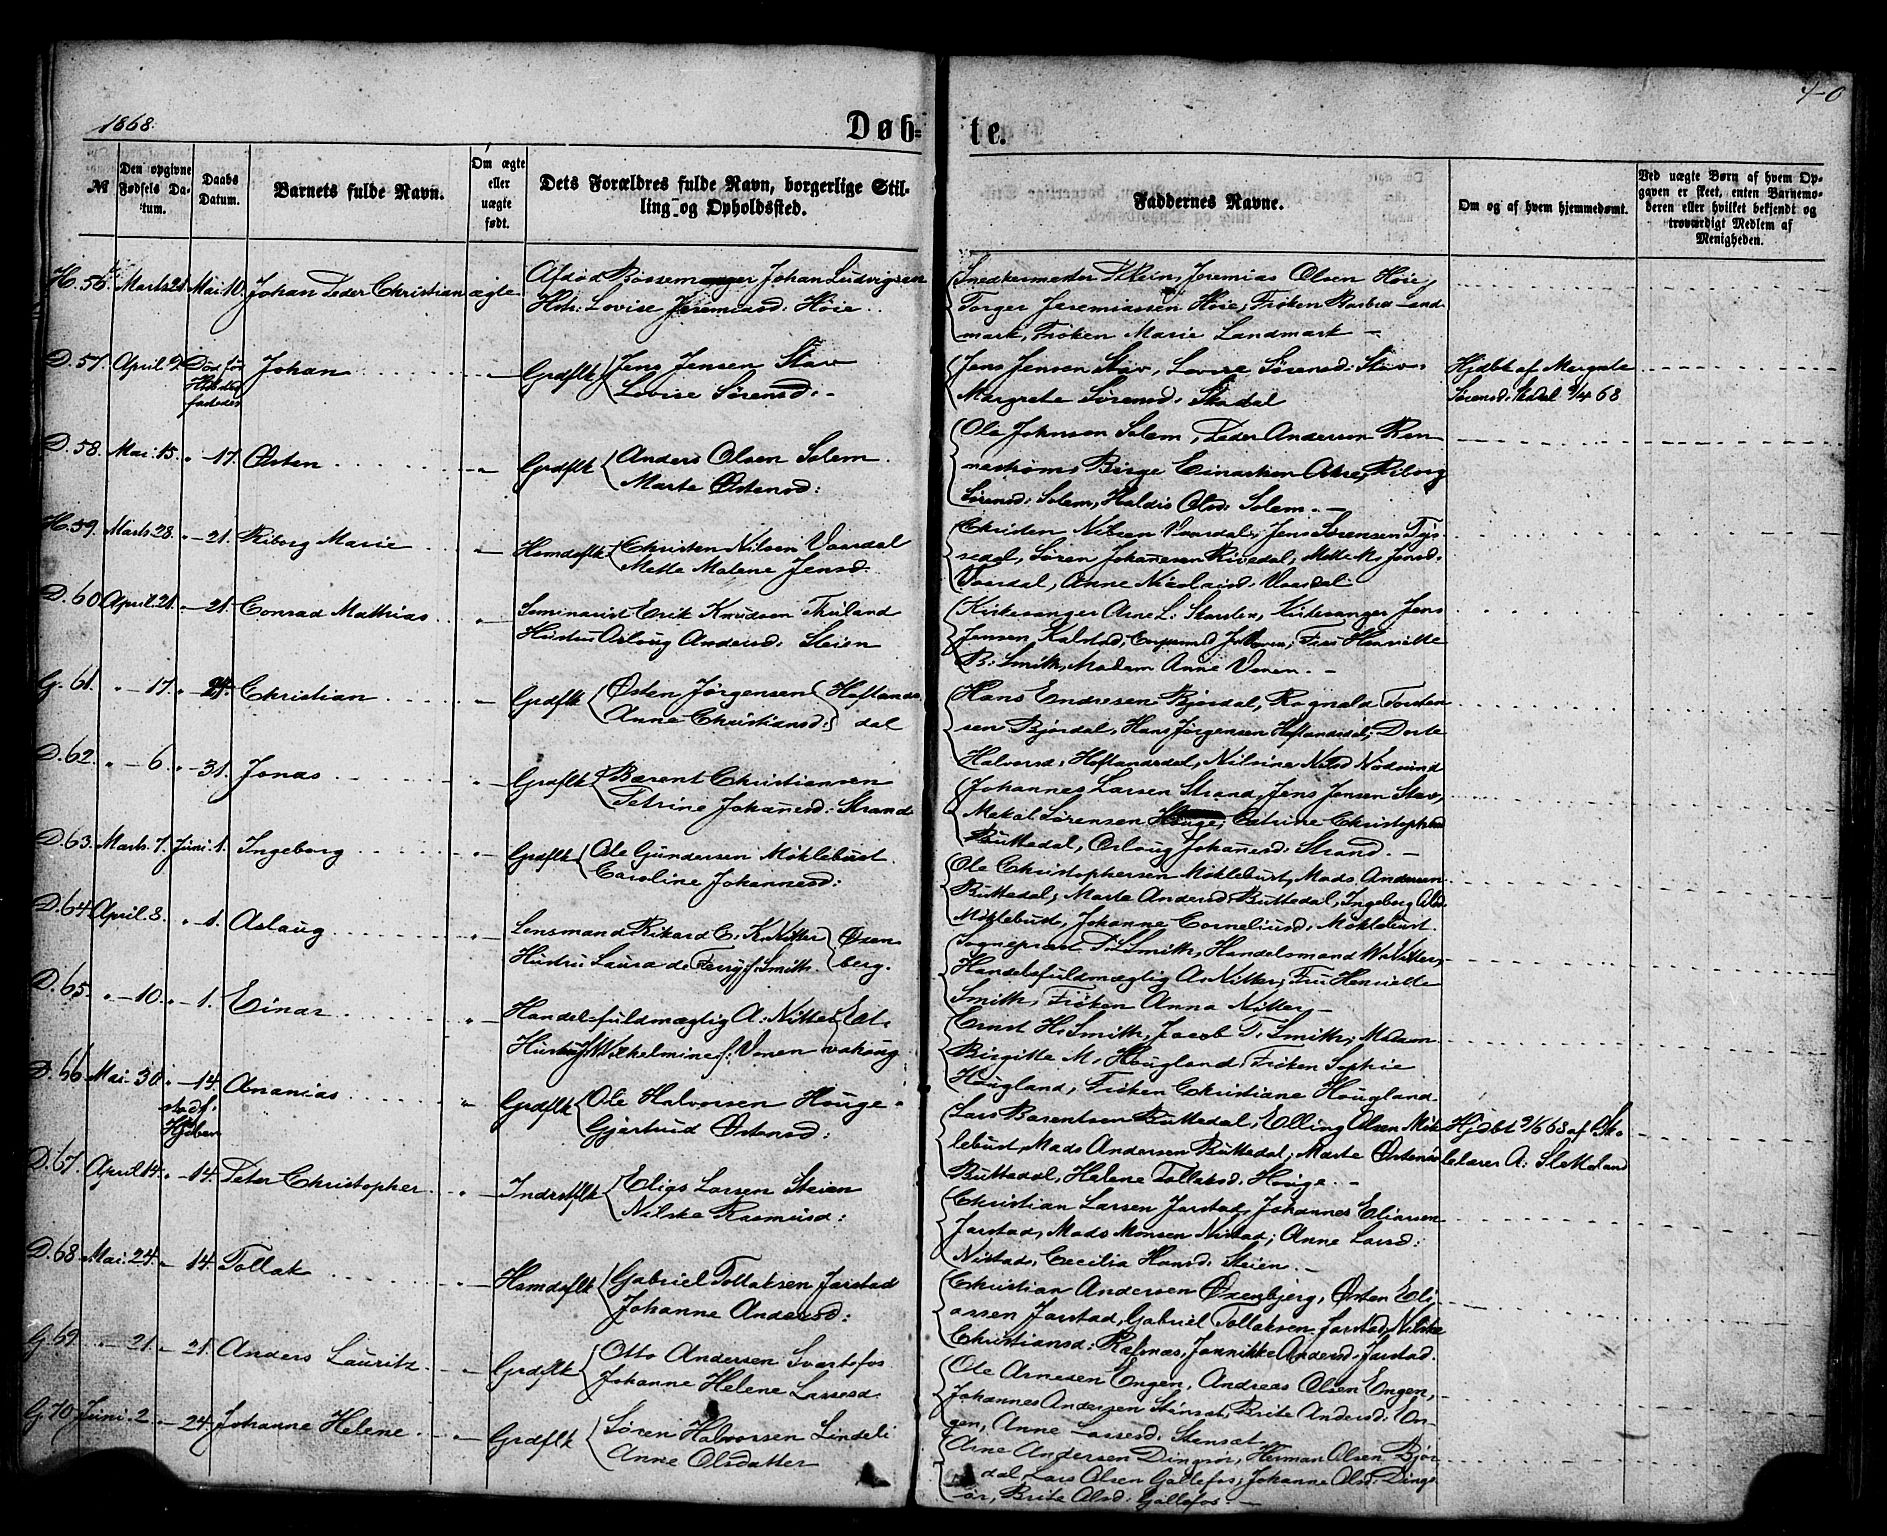 1868.
Døb=
te.
70
№
Den opgivne Fødsels Da-tum.
Daabs Datum.
Barnets fulde Navn.
Om ægte eller uægte født.
Dets Forældres fulde Navn, borgerlige Stil-
ling og Opholdssted.
Faddernes Navne.
Om og af hvem hjemmedømt.
Ved uægte Børn af hvem Op-
gaven er skeet, enten Barnemo-
deren eller hvilket bekjendt og
troværdigt Medlem af
Menigheden.
H. 56. Marts 21. Mai 10. Johan Peder Christian ægte
Afdød Bøssemager Johan Ludvigsen
Hstr: Lovise Jeremiasd: Høie.
Snedkermester Jeremias Olsen Høie,
Torger Jeremiassen Høie, Frøken Barbra Land
mark, Frøken Marie Landmark –
D. 57. April 2. Død før Johan - "
Grdflk Jens Jensen Stav
Lovise Sørensd: -
Jens Jensen Stav, Lovise Sørensd: Stav,
Margrete Sørensd:
Hjdbt af Margrete
Sørensd: 9/4 68
D. 58. Mai: 15. " - 17. Østen - "
Grdflk Anders Olsen Solem
Marte Østensd:
Ole Johnsen Solem, Peder Andersen Ren
nestrøm, Birge Einarsen Riborg
Sørensd: Solem, Haldis Olsd: Solem. –
H. 59. Marts 28. " - 21. Riborg Marie - "
Hsmdsflk Christen Nilsen Vaardal
Mette Malene Jensd.
Christen Nilsen Vaardal, Jens Sørensen Tys
sedal, Søren Johanesen Rivedal, Mette M. Jensd.
Vaardal, Anne Nicolaisd: Vaardal.
D. 60. April. 21. " - 21. Conrad Mathias - "
Seminarist Erik Knudsen Thuland
Hustru Aslaug Andersd: Steien
Kirkesanger Arne L. Kirkesanger Jens
Jensen Kalstad, Fru Henriette
B: Smith, Madam Anne Vonen. –
G. 61. " - 17. " - 24. Christian - "
Grdflk Østen Jørgensen Hoflands
Anne Christiansd: dal
Hans Endresen Bjørdal, Rognald Torsten
sen Bjørdal, Hans Jørgensen Hoflandsdal, Dorte
Halvorsd: Hoflandsdal, Nilsine Nilsd Nødsund
D. 62. " - 6. " - 31. Jonas - "
Grdflk Barent Christiansen
Petrine Johanesd: Strand
Johannes Larsen Strand, Jens Jensen Stav,
Mekal Sørensen Houge, Catrine Christophersd
Buttedal, Oslaug Johanesd: Strand. –
D. 63. Marts. 7. Juni. 1. Ingeborg - "
Grdflk Ole Gundersen Møklebust.
Caroline Johannesd:
Ole Christophersen Møklebust, Mads Andersen
Buttedal, Marte Andersd: Buttedal, Ingeborg Olsd.
Møklebust, Johanne Corneliusd: Møklebust.
D. 64. April. 8. " - 1. Aslaug - "
Lensmand Rikard C. K. Nitter Oxen
Hustru Laura de Ferry f: Smith. berg.
Sogneprest T: Smith, Handelsmand W. Nitter,
Handelsfuldmægtig A. Nitter, Fru Henriette
Smith, Frøken Anna Nitter –
D. 65. " - 10. " - 1. Einar - "
Handelsfuldmægtig A: Nitter Eel
Hustru Wilhelmine f: Vonen vahoug
Ernst H. Smith, Jacob T. Smith, Madam
Birgitte M. Hougland, Frøken Sophie
Hougland, Frøken Christiane Hougland
D. 66. Mai. 30. " - 14. Ananias - "
Grdflk Ole Halvorsen Houge
Gjertrud Østensd:
Lars Barentsen Buttedal, Elling Olsen Møk
lebust, Mads Andersen Buttedal, Marte Østensd
Buttedal, Helene Tollaksd: Houge. –
Hjdbt 2/6 68 af Sko
lelærer A: Sletteland
D. 67. April 14. " - 14. Peter Christopher - "
Indrstflk Elias Larsen Steien
Nilske Rasmusd:
Christian Larsen Jarstad, Johannes Eliassen
Jarstad, Mads Monsen Nistad; Anne Larsd:
Nistad, Cecilia Hansd: Steien. –
D. 68. Mai. 24. " - 14. Tollak - "
Hsmdsflk Gabriel Tollaksen Jarstad
Johanne Andersd:
Christian Andersen Oxenbjerg, Østen Eli
assen Jarstad, Gabriel Tollaksen Jarstad, Nilske
Christiansd: Rafnøs, Jannikke Andersd: Jarstad.
G. 69. " - 21. " - 21. Anders Lauritz - "
Grdflk Otto Andersen Svartefos
Johanne Helene Lassesd.
Ole Arnesen Engen, Andreas Olsen Engen,
Johannes Andersen Stensat, Brite Andersd: En-
gen, Anne Lassesd: Stensat –
G. 70. Juni. 2. " - 24. Johanne Helene - "
Grdflk Søren Halvorsen Lindeli
Anne Olsdatter
Arne Andersen Dingøir, Herman Olsen Bjør
dal, Lars Olsen Gollefos, Johanne Olsd: Dingø
ir, Brite Olsd: Gollefos. –